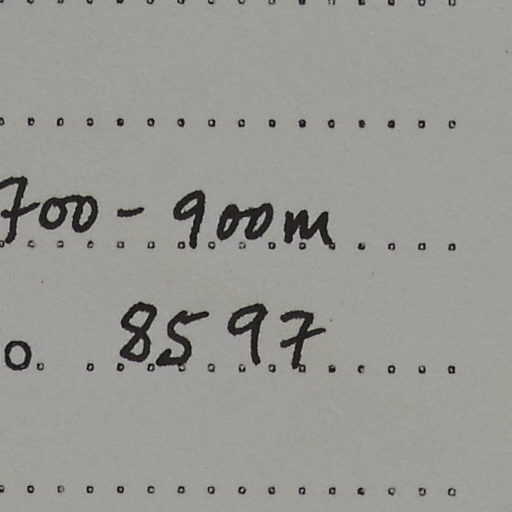 700 - 900m
o. 8597